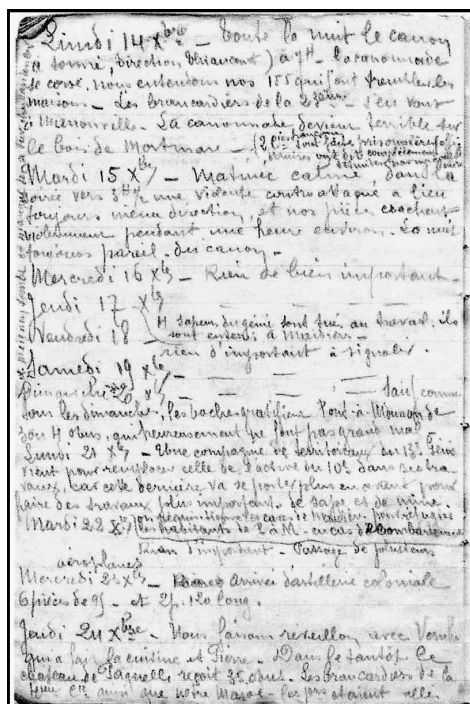 Lundi 14 Xbre - Toute la nuit le canon
a tonné, direction Thiaucourt) à 7H. la canonnade
se corse, nous entendons nos 155 qui font trembler les
maisons. - Les brancardiers de la 23ème s'en vont
à Manonville. La canonnade devient terrible sur
le bois de Mortmare - 
Mardi 15 Xbre - Matinée calme dans la
soirée vers 3H ½ une violente contre attaque a lieu
toujours même direction, et nos pièces crachent
violemment pendant une heure environ. La nuit
toujours pareil. du canon -
Mercredi 16 Xbre - Rien de bien important -
Jeudi 17 Xbre - - -
Vendredi 18 - 4 sapeurs du génie sont tués au travail, ils
sont enterrés à Maidières -
rien d'important à signaler.
Samedi 19 Xbre - - - -
Dimanche 20 Xbre - - - sauf comme
tous les dimanches, les boches gratifient Pont-à-Mousson de
son 4 obus, qui heureusement ne font pas grand mal
Lundi 21 Xbre - Une compagnie de territoriaux du 13e Génie
vient pour remplacer celle de l'active du 10e dans ses tra-
vaux, car cette dernière va se porter plus en avant pour
faire des travaux plus important. de sape et de mine.
Mardi 22 Xbre on réquisitionne les caves de Maidières pour réfugier
les habitants de P à M. en cas de Bombardement
Rien d'important - Passage de plusieurs
aéroplanes
Mercredi 23 Xbre - Arrivée d'artillerie coloniale
6 pièces de 95 - et 2p. 120 long.
Jeudi 24 Xbre - Nous faisons reveillon avec
qui a fait la cuisine et Pierre - Dans le tantôt le
chateau de reçoit 35 obus. Les brancardiers de la
Cie ainsi que notre étaient allés